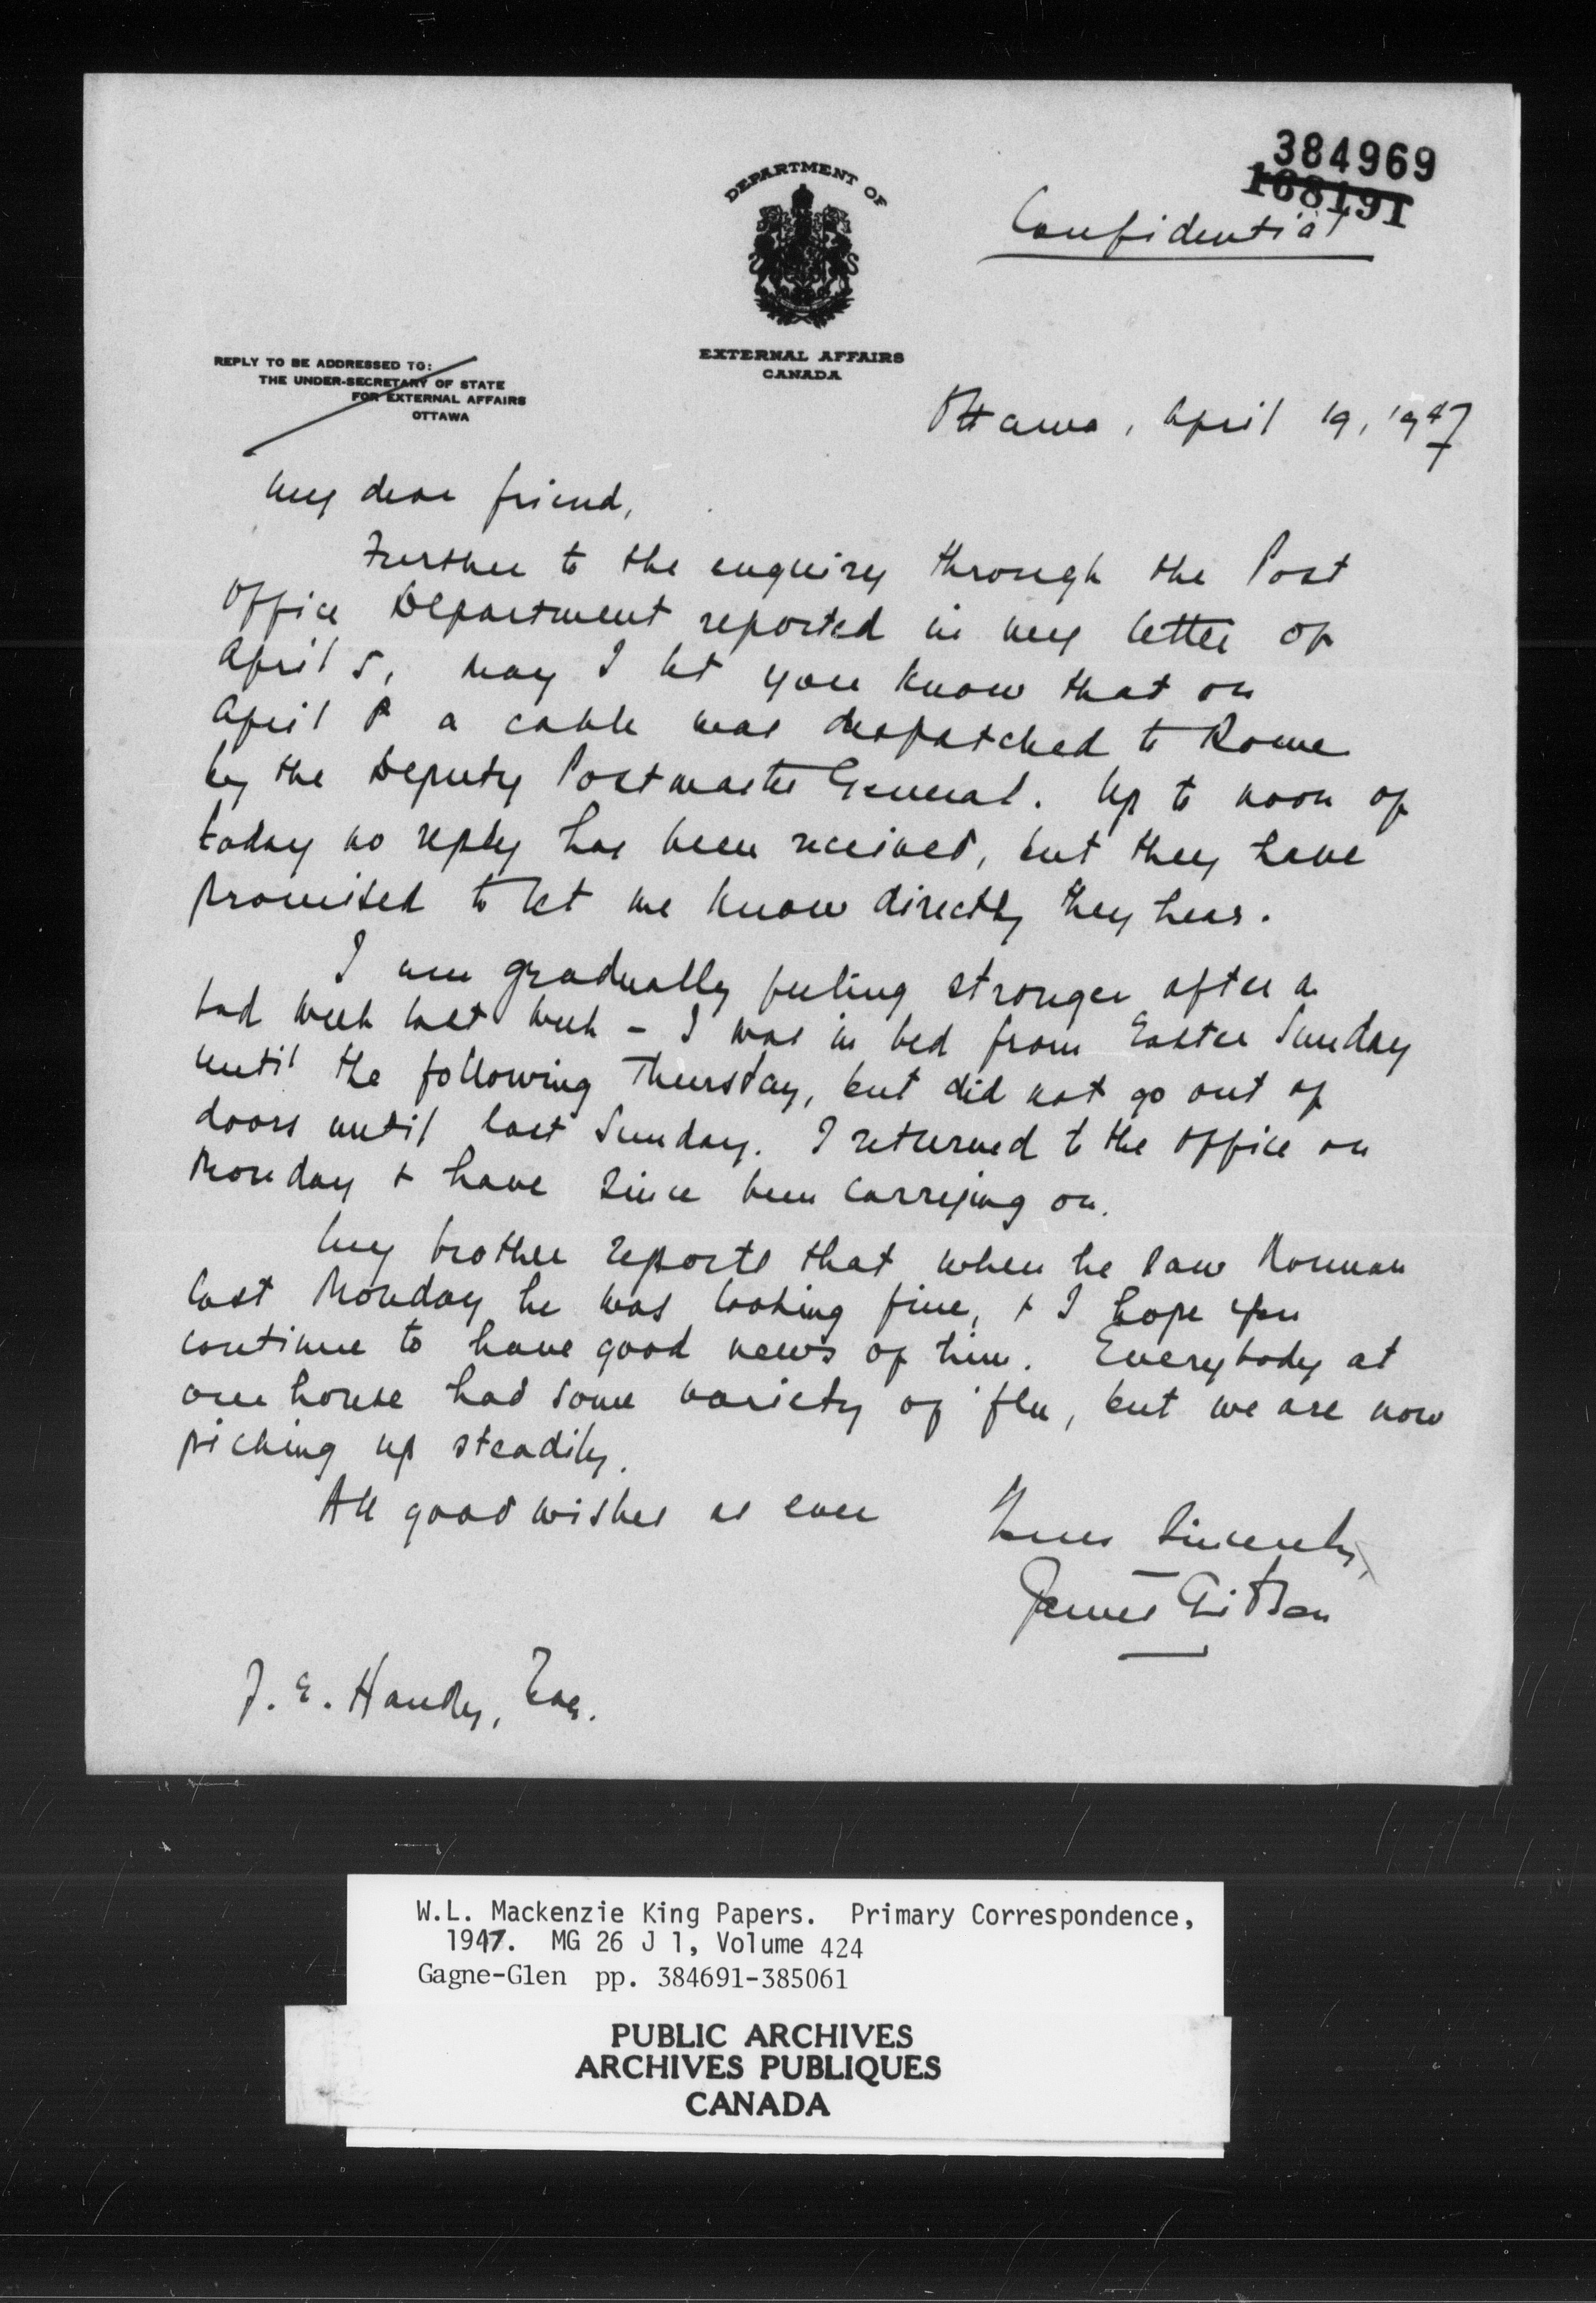 384969
168191
Confidential
DEPARTMENT OF
EXTERNAL AFFAIRS
CANADA
REPLY TO BE ADDRESSED TO:
THE UNDER-SECRETARY OF STATE
FOR EXTERNAL AFFAIRS
OTTAWA
Ottawa, April 19, 1947
My dear friend,
Further to the enquiry through the Post
Office Department reported in my letter of
April 5, may I let you know that on
April 8 a cable was despatched to Rome
by the Deputy Postmaster General. Up to noon of
today no reply has been received, but they have
promised to let me know directly they hear.
I am gradually feeling stronger after a
bad week last week - I was in bed from Easter Sunday
until the following Thursday, but did not go out of
doors until last Sunday. I returned to the office on
Monday + have since been carrying on.
My brother reports that when he saw Norman
last Monday he was looking fine, + I hope you
continue to have good news of him. Everybody at
our house had some variety of 'flu, but we are now
picking up steadily.
All good wishes as ever
Yours sincerely,
James Gibson
J. E. Handy, Esq.
W.L. Mackenzie King Papers. Primary Correspondence,
1947. MG 26 J 1, Volume 424
Gagne-Glen pp. 384691-385061
PUBLIC ARCHIVES
ARCHIVES PUBLIQUES
CANADA